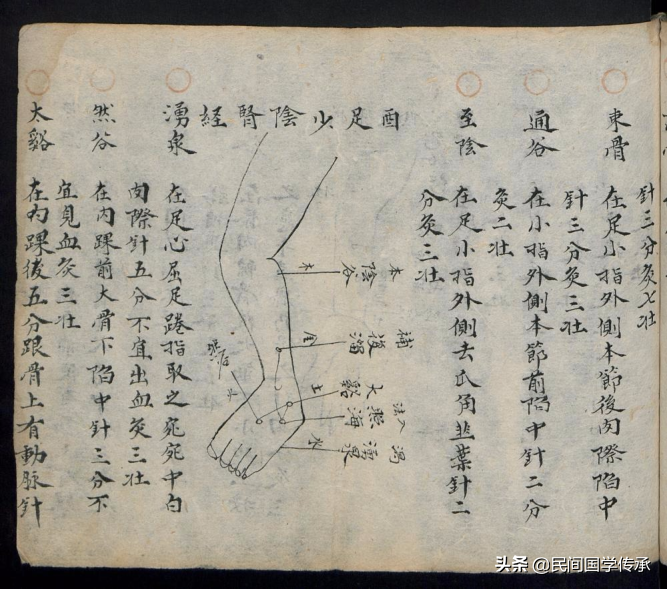 針三分灸七壯
東骨 在足小指外側本節後肉際陷中
針三分灸三壯
通谷 在小指外側本節前陷中針二分
灸二壯
至陰 在足小指外側去爪角韭葉針二
分灸三壯
酉足少陰腎経
本 陰谷 木
補 復溜 金
大谿 土
注入 照海
瀉 湧泉 木
火
湧泉 在足心屈足踡指取之宛宛中白
肉際針五分不宜出血灸三壯
然谷 在內踝前大骨下陷中針三分不
宜見血灸三壯
太谿 在內踝後五分跟骨上有動脉針
头条 @民间国学传承